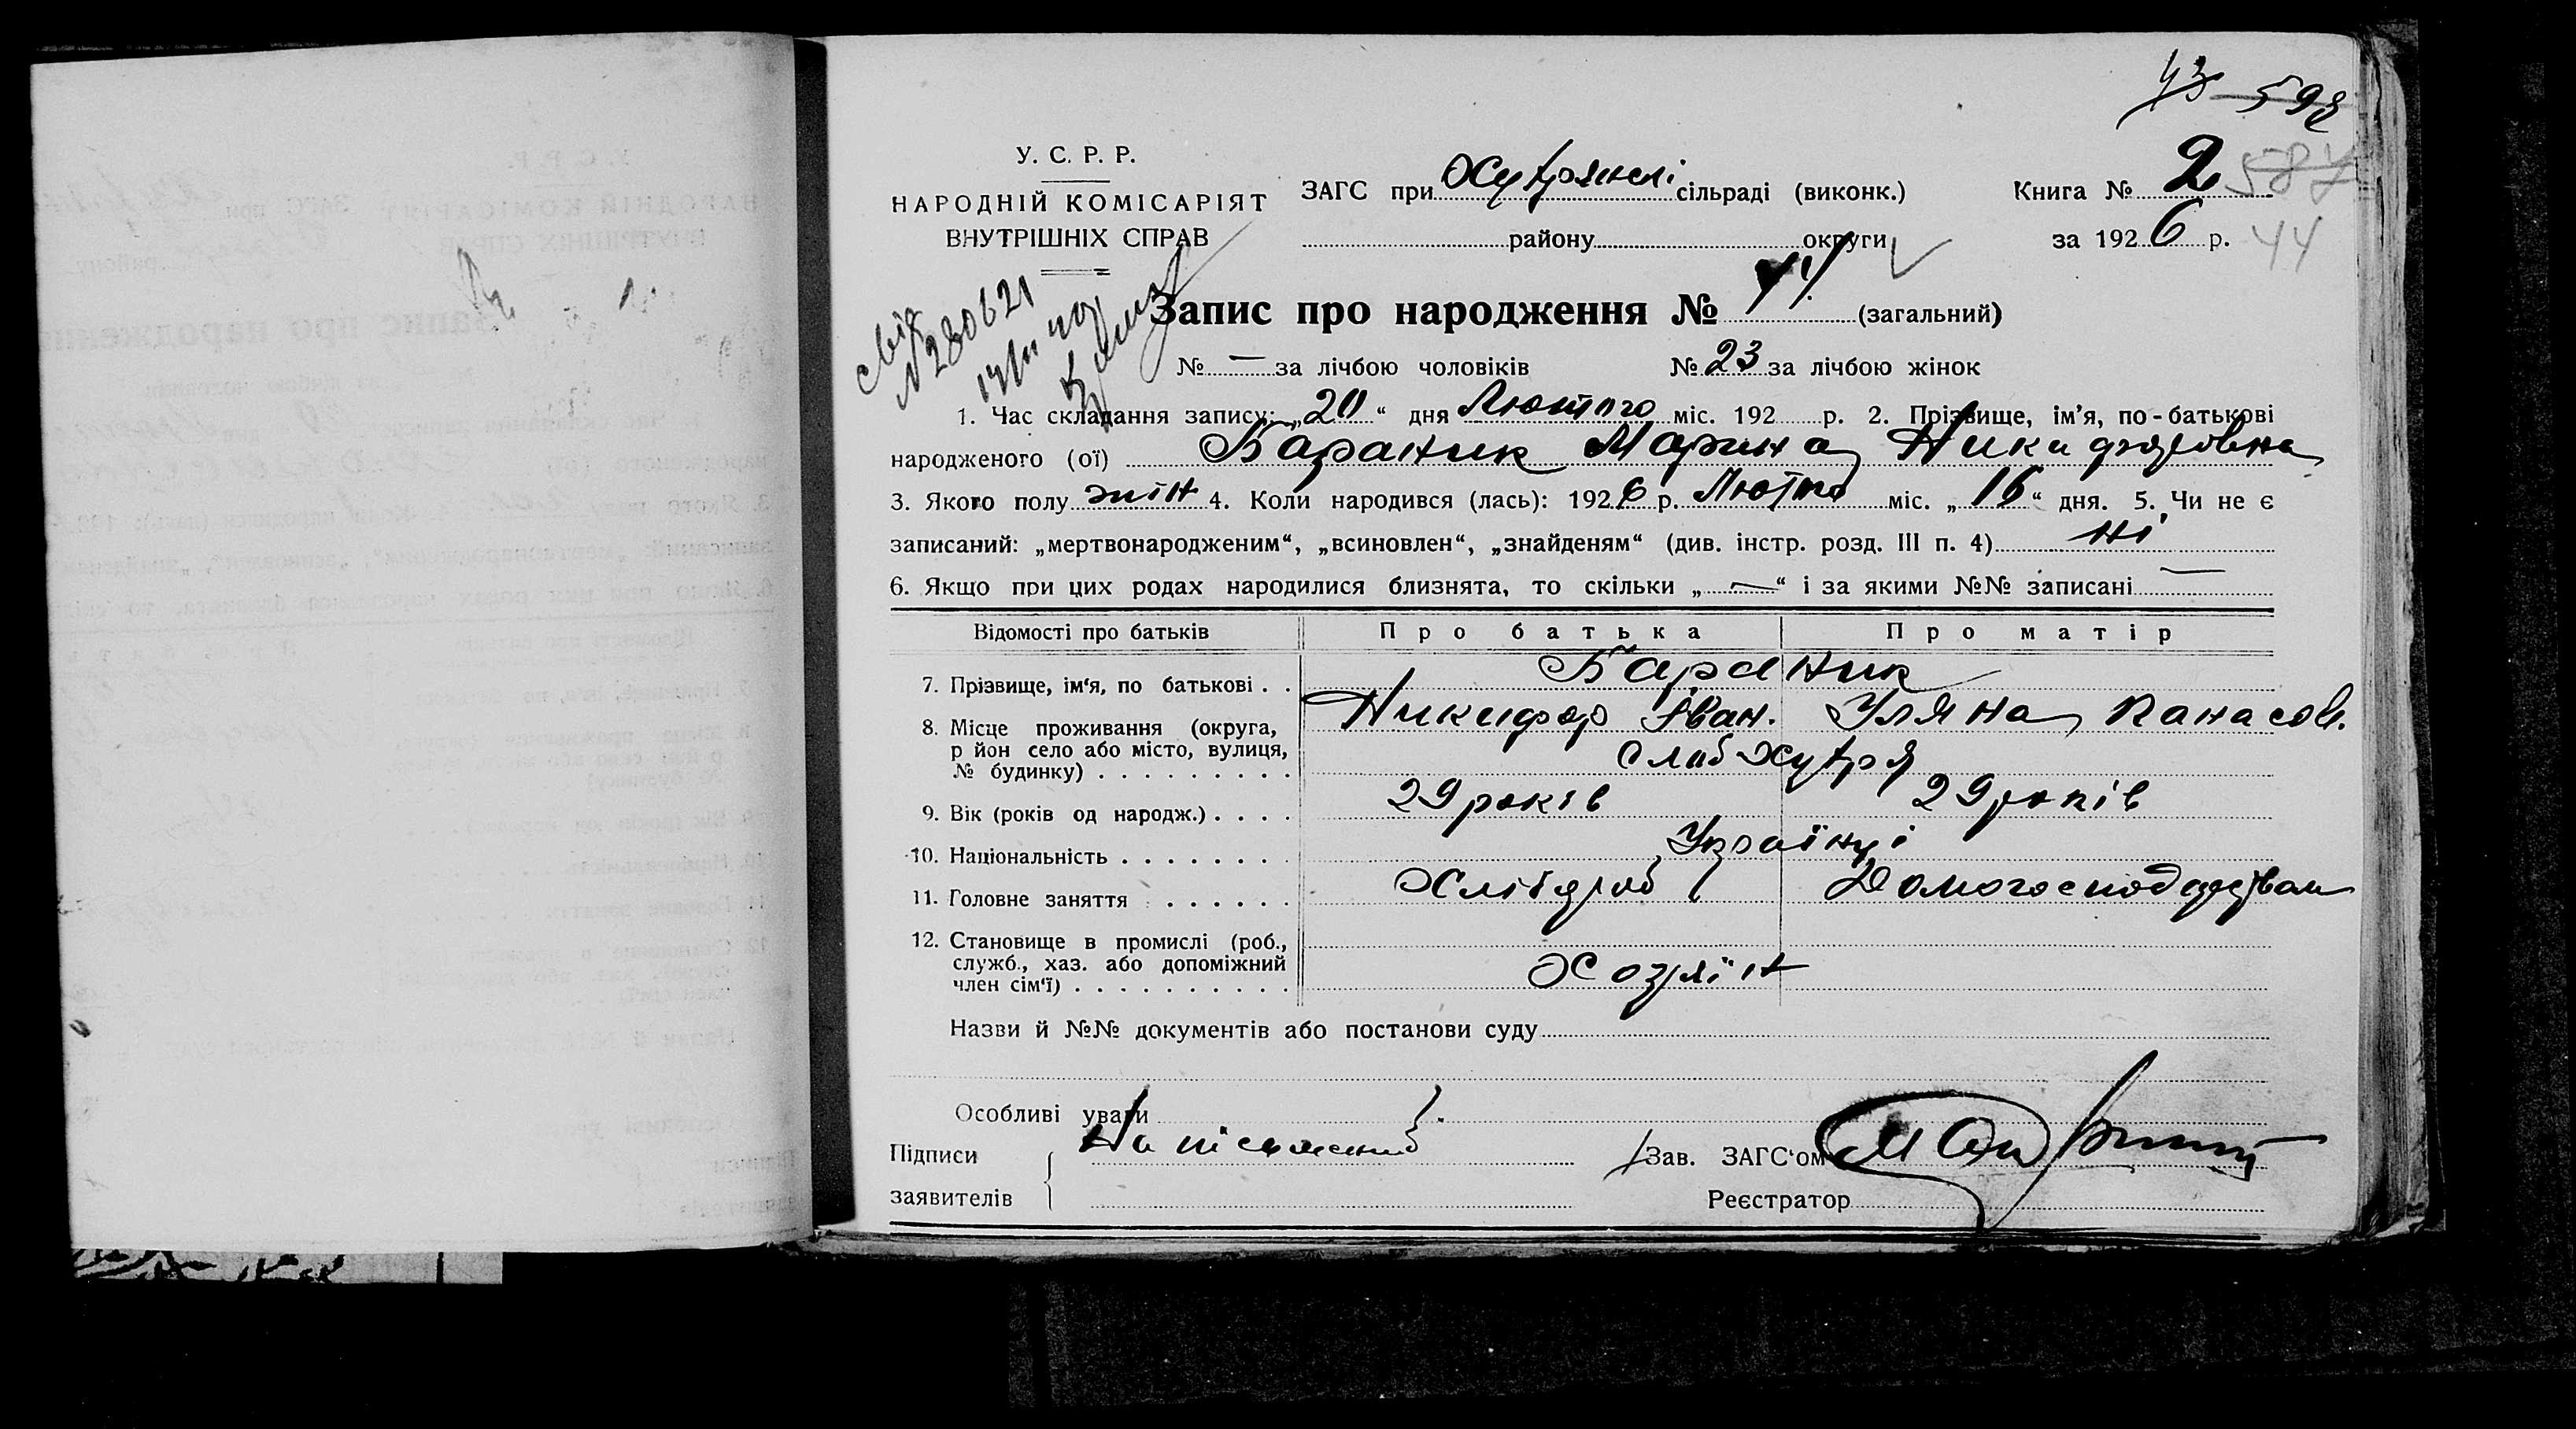 43 592
У. С. Р. Р.
НАРОДНІЙ КОМІСАРІЯТ
ВНУТРІШНІХ СПРАВ
ЗАГС при Хутрянскі сільраді (виконк.)
району округи
Книга № 2 587
за 1926 р. 44
Запис про народження № 41 (загальний)
№ 280621
№ — за лічбою чоловіків № 23 за лічбою жінок
1. Час складання запису: „20“ дня Лютого міс. 192 р. 2. Прізвище, ім’я, по-батькові
народженого (ої) Бараник Марина Никифоровна
3. Якого полу жін 4. Коли народився (лась): 1926 р. Лютого міс. „16“ дня. 5. Чи не є
записаний: „мертвонародженим“, „всиновлен“, „знайденям“ (див. інстр. розд. III п. 4) ні
6. Якщо при цих родах народилися близнята, то скільки „—“ і за якими №№ записані —
Відомості про батьків Про батька Про матір
7. Прізвище, ім‘я, по батькові . . Бараник
Никифор Іван. Уляна Панасов.
8. Місце проживання (округа,
р йон село або місто, вулиця,
№ будинку) . . . . . . . . . Слоб Хутря
9. Вік (років од народж.) . . . . 29 років 29 років
10. Національність . . . . . . . . Українці
11. Головне заняття . . . . . . Хлібороб Домогосподарством
12. Становище в промислі (роб.,
служб., хаз. або допоміжний
член сім‘ї) . . . . . . . . . . Хозяїн
Назви й №№ документів або постанови суду
Особливі уваги
Підписи
заявителів
Зав. ЗАГС‘ом
Реєстратор